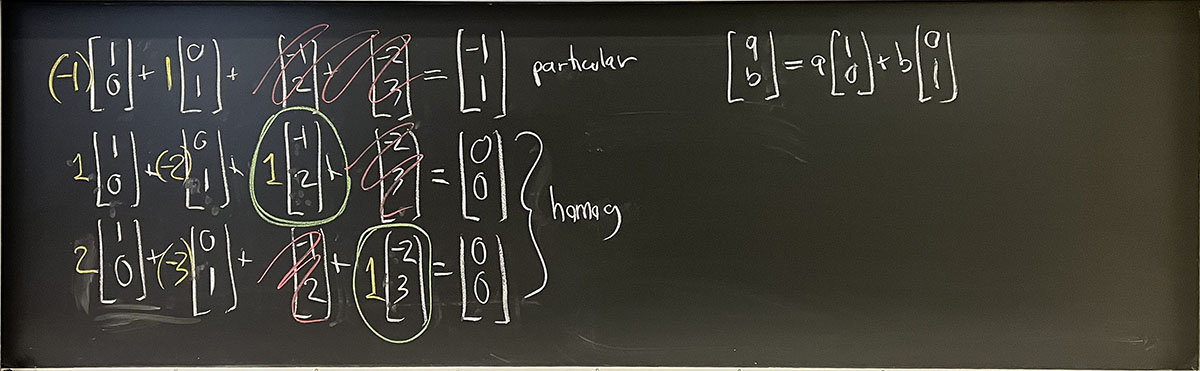 (-1) [1 0] + 1 [0 1] + [-1 2] + [-2 3] = [-1 1] particular
[a b] = a [1 0] + b [0 1]
1 [1 0] + (-2) [0 1] + 1 [-1 2] + [-2 3] = [0 0]
homog
2 [1 0] + (-3) [0 1] + [-1 2] + 1 [-2 3] = [0 0]